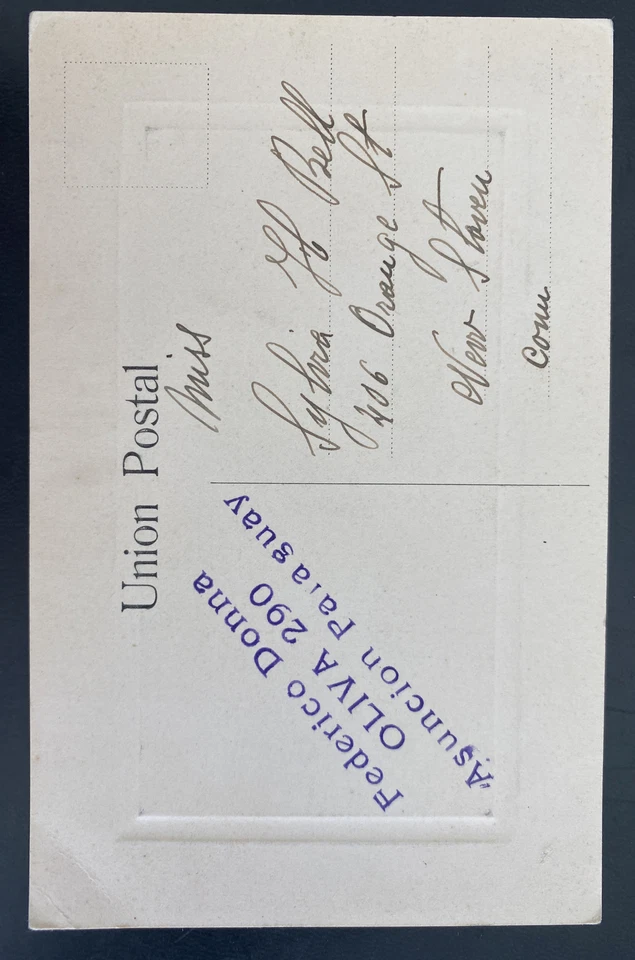 Union Postal
Miss
Sylvia H Bell
406 Orange St
New Haven
Conn
Federico Donna
OLIVA 290
Asuncion Paraguay